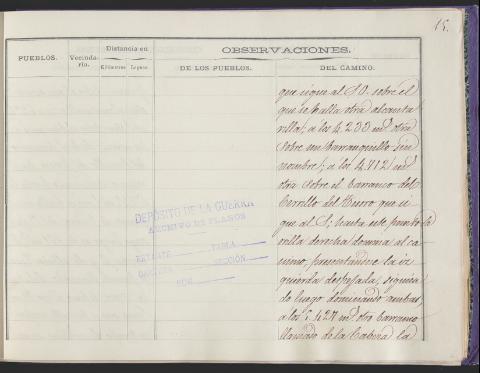 15.
PUEBLOS.
Vecinda-
rio.
Distancia en
Kilómetros Leguas.
OBSERVACIONES.
DE LOS PUEBLOS.
DEL CAMINO.
que sigue al SO. sobre el
que se halla otra alcanta
rilla; a los 4.233 m.s otra
sobre un barranquillo sin
nombre; a los 4.712 m.s
otra sobre el barranco del
Cerrillo del Puerro que si
gue al S; hasta este punto la
orilla derecha domina al ca
mino, presentandose la iz
quierda despejada, siguien
do luego dominando ambas,
a los 5.427 m.s otro barranco
llamado de la Cabeza la
DEPÓSITO DE LA GUERRA
ARCHIVO DE PLANOS
ESTANTE TABLA
CARPETA SECCIÓN
NÚM.